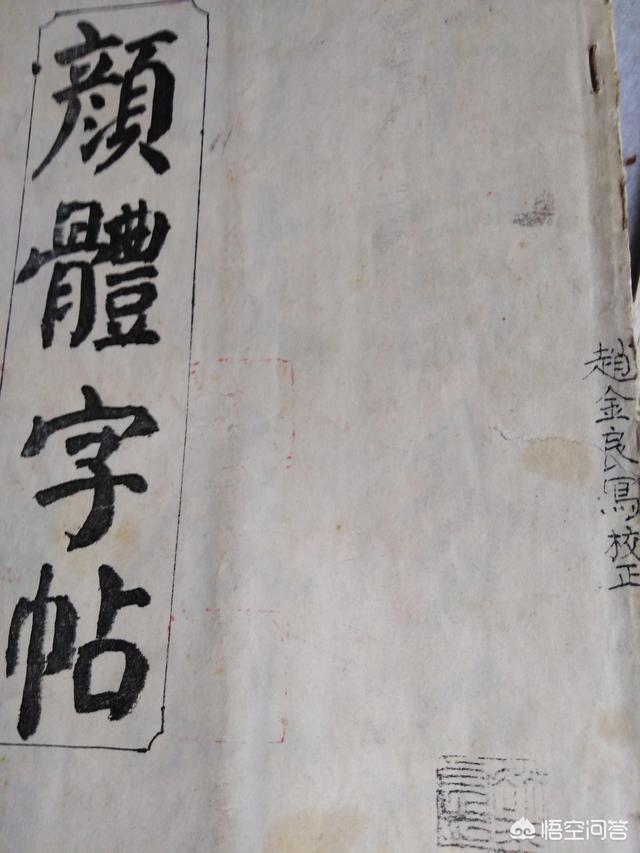 顔體字帖
趙金良寫校正
悟空问答